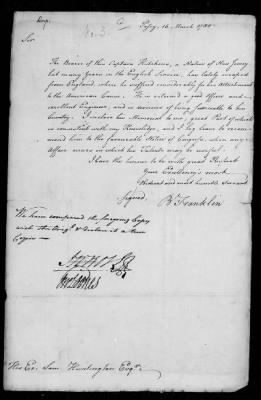 Copy
No. 3.
Passy, 16 March 1780
Sir
The Bearer of this Captain Hutchins, a Native of New Jersey
but many Years in the English Service, has lately escaped
from England, where he suffered considerably for his Attachment
to the American Cause. He is esteemed a good Officer and an
excellent Engineer, and is desirous of being serviceable to his
Country. I inclose his Memorial to me, great Part of which
is consistent with my Knowledge, and I beg leave to recom-
mend him to the favourable Notice of Congress, when any
Affair occurs in which his Talents may be useful.
I have the honour to be with great Respect
Your Excellency's most
Obedient and most humble Servant
Signed. B. Franklin
We have compared the foregoing Copy
with the Orig.l & declare it a true
Copie
His Ex. Sam Huntington Esq.r